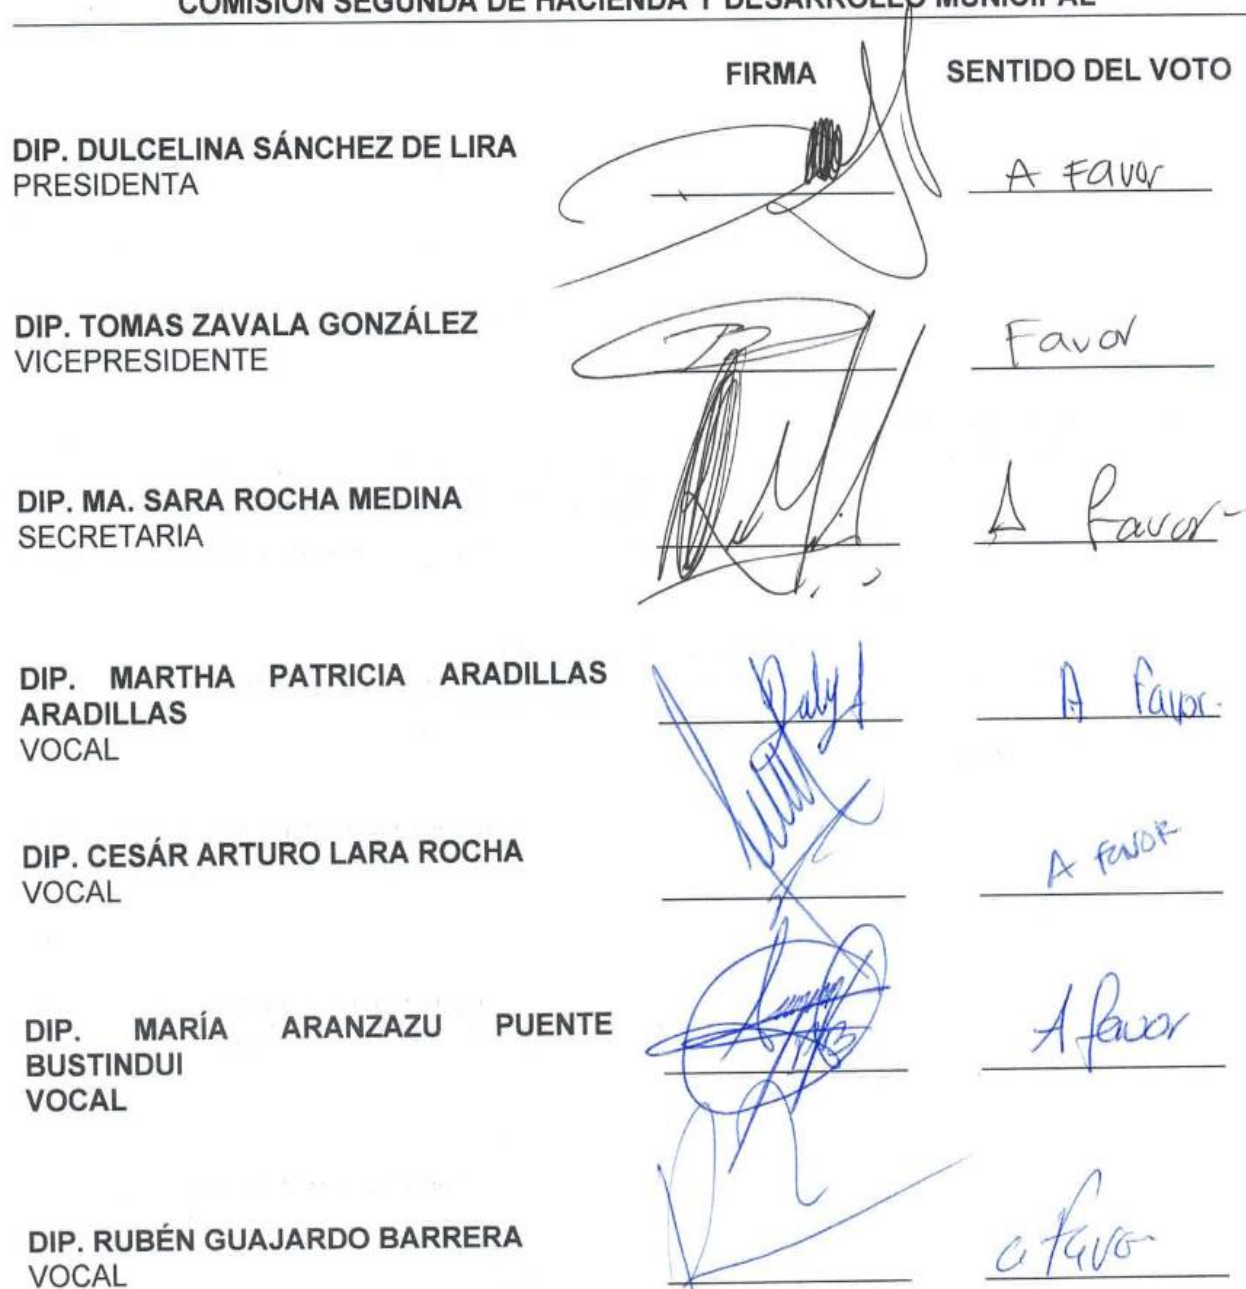 COMISIÓN SEGUNDA DE HACIENDA Y DESARROLLO MUNICIPAL
FIRMA SENTIDO DEL VOTO
DIP. DULCELINA SÁNCHEZ DE LIRA
PRESIDENTA
A Favor
DIP. TOMAS ZAVALA GONZÁLEZ
VICEPRESIDENTE
Favor
DIP. MA. SARA ROCHA MEDINA
SECRETARIA
A favor
DIP. MARTHA PATRICIA ARADILLAS
ARADILLAS
VOCAL
A Favor.
DIP. CESÁR ARTURO LARA ROCHA
VOCAL
A FAVOR
DIP. MARÍA ARANZAZU PUENTE
BUSTINDUI
VOCAL
A favor
DIP. RUBÉN GUAJARDO BARRERA
VOCAL
a favor